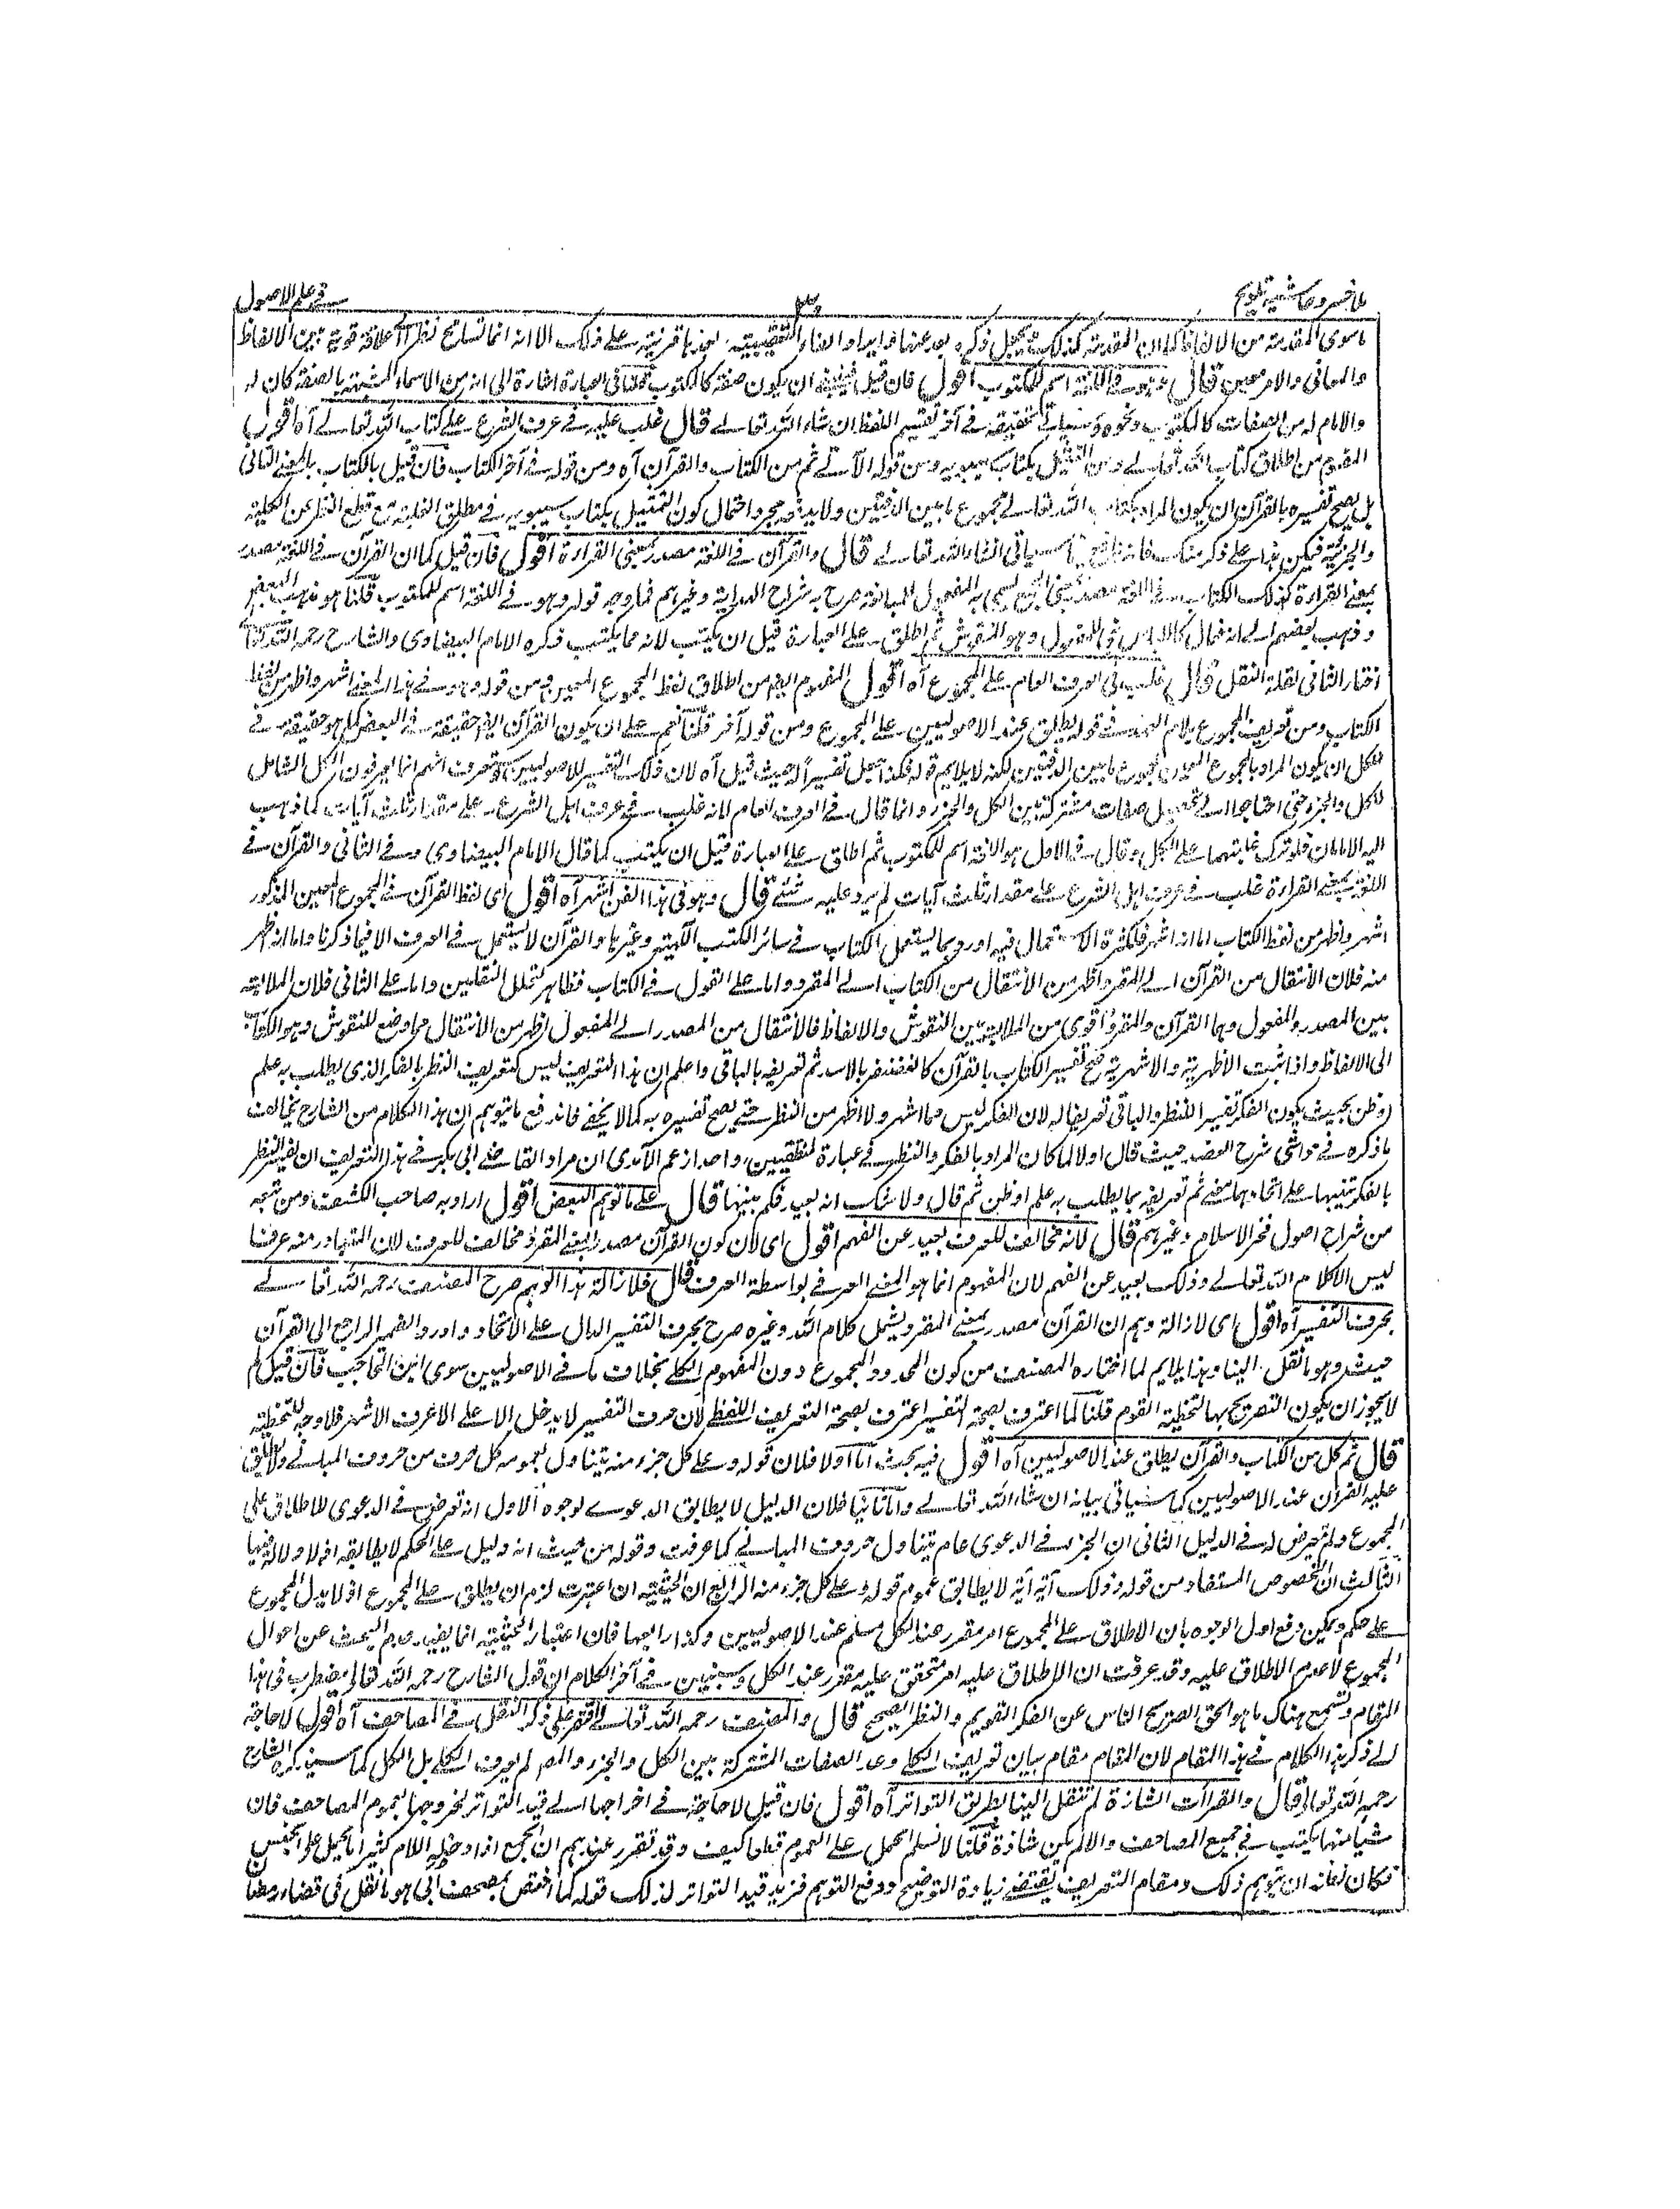 ملا خسرو حاشية تلويح
٣٠
في علم الاصول
ماسوى المقدمة من الالفاظ كما ان المقدمة كذلك ذكره بعد عنها ايراد الفاء التعقيبية بعدها قرينة على ذلك الا انه انما تسامح نظرا الى علاقة قوية بين الالفاظ
والمعاني والامر معين قال وهو في اللغة اسم للمكتوب اقول فان قيل فينبغي ان يكون صفة كالمكتوب قلنا في العبارة اشارة الى انه من الاسماء المشبهة بالصفة كان له
والامام لا من الصفات كالمكتوب ونحوه وسياتي تحقيقه في آخر تقسيم اللفظ ان شاء الله تعالى قال غلب عليه في عرف الشرع على كتاب الله تعالى آه اقول
المفهوم من اطلاق كتاب الله تعالى ومن التمثيل بكتاب سيبويه ومن قوله الآتي ثم من الكتاب والقرآن آه ومن قوله في آخر الكتاب فان قيل بالكتاب بالمعنى الثاني
بل يصح تفسيره بالقرآن ان يكون المراد بكتاب الله تعالى مجموع ما بين الدفتين ولا يدفعه مجرد احتمال كون التمثيل بكتاب سيبويه في مطلق الغلبة مع قطع النظر عن الكلية
والجزئية فليكن هذا على ذكر منك فانه نافع سياتي انشاء الله تعالى قال والقرآن في اللغة مصدر بمعنى القراءة اقول فان قيل كما ان القرآن في اللغة مصدر
بمعنى القراءة كذلك الكتاب في اللغة مصدر بمعنى الجمع سمي به المفعول للمبالغة صرح به شراح الهداية وغيرهم فما وجه قوله وهو في اللغة اسم للمكتوب قلنا هو مذهب البعض
وذهب بعضهم الى انه فعال كاللباس بني للمفعول وهو النقوش ثم اطلق على العبارة قبل ان يكتب لانه مما يكتب ذكره الامام البيضاوي والشارح رحمه الله كذا
اختار الثاني لقلة النقل قال غلب في العرف العام على المجموع آه اقول المفهوم ايضا من اطلاق لفظ المجموع المعين ومن قوله وهو في هذا المعنى اشهر واظهر من لفظ
الكتاب ومن تعريف المجموع بلام العهد في قوله يطلق عند الاصوليين على المجموع ومن قوله آخر قلنا نعم على ان يكون القرآن ايضا حقيقة في البعض كما هو حقيقة في
الكل ان يكون المراد بالمجموع المعين مجموع ما بين الدفتين لكنه لا يلايم قوله فلهذا جعل تفسيرا له حيث قيل آه لان ذلك التفسير للاصوليين وستعرف انهم انما يعرفون الكل الشامل
للكل والجزء حتى احتاجوا الى تحصيل صفات مشتركة بين الكل والجزء وانما قال في العرف العام لانه غلب في عرف اهل الشرع على مقدار ثلث آيات كما ذهب
اليه الامامان فلو ترك غلبتهما على الكل وقال في الاول هو لغة اسم للمكتوب ثم اطلق على العبارة قبل ان يكتب كما قال الامام البيضاوي وفي الثاني والقرآن في
اللغة بمعنى القراءة غلب في عرف اهل الشرع على مقدار ثلث آيات لم يرد عليه شئ قال وهو في هذا الفن اشهر آه اقول اي لفظ القرآن في المجموع المعين المذكور
اشهر واظهر من لفظ الكتاب اما انه اشهر فلكثرة الاستعمال فيه او ربما يستعمل الكتاب في سائر الكتب الآلهية وغيرها والقرآن لا يستعمل في العرف الا فيما ذكرنا واما انه اظهر
منه فلان الانتقال من القرآن الى المقرو اظهر من الانتقال من الكتاب الى المقرو واما على القول في الكتاب فظاهر لتخلل النقلين واما على الثاني فلان الملابسة
بين المصدر والمفعول وهما القرآن والمقرو اقوى من الملابسة بين النقوش والالفاظ فالانتقال من المصدر الى المفعول اظهر من الانتقال مما وضع للنقوش وهو الكتاب
الى الالفاظ واذا ثبت الاظهرية والاشهرية صح تفسير الكتاب بالقرآن كالغضنفر بالاسد ثم تعريفه بالباقي واعلم ان هذا التعريف ليس كتعريف النظر بالفكر الذي يطلب به علم
او ظن بحيث يكون الفكر تفسير اللنظر والباقي تعريفا له لان الفكر ليس مما اشهر ولا اظهر من النظر حتى يصح تفسيره به كما لا يخفى فاندفع ما يتوهم ان هذا الكلام من الشارح يخالف
ما ذكره في حواشي شرح العضد حيث قال اولا لما كان المراد بالفكر والنظر في عبارة المنطقيين واحدا زعم الآمدي ان مراد القاضي ابي بكر في هذا التعريف ان يفسر النظر
بالفكر تنبيها على اتحادهما معنى ثم تعريفه بما يطلب به علم او ظن ثم قال ولا شك انه بعيد فكم بينهما قال على ما توهم البعض اقول اراد به صاحب الكشف ومن تبعه
من شراح اصول فخر الاسلام وغيرهم قال لانه مخالف للعرف بعيد عن الفهم اقول اي لان كون القرآن مصدرا بمعنى المقرو مخالف للعرف لان المتبادر منه عرفا
ليس الا كلام الله تعالى وذلك بعيد عن الفهم لان المفهوم انما هو المعنى العرفي بواسطة العرف قال فلازالة هذا الوهم صرح المصنف رحمه الله تعالى
بحرف التفسير آه اقول اي لازالة وهم ان القرآن مصدر بمعنى المقرو يشمل كلام الله وغيره صرح بحرف التفسير الدال على الاتحاد واورد الضمير الراجع الى القرآن
حيث وهو ما نقل الينا وهذا يلايم لما اختاره المصنف من كون المحدود المجموع دون المفهوم الكلي بخلاف ما في الاصوليين سوى ابن الحاجب فان قيل لم
لا يجوز ان يكون التصريح بها لتخطية القوم قلنا لما اعترف بصحة التفسير اعترف بصحة التعريف اللفظي لان حرف التفسير لا يدخل الا على الاعرف الاشهر فلا وجه للتخطية
قال ثم كل من الكتاب والقرآن يطلق عند الاصوليين آه اقول فيه بحث اما اولا فلان قوله وعلى كل جزء منه يتناول بعمومه كل حرف من حروف المباني ولا يطلق
عليه القرآن عند الاصوليين كما سياتي بيانه ان شاء الله تعالى واما ثانيا فلان الدليل لا يطابق الدعوى لوجوه الاول انه تعرض في الدعوى للاطلاق على
المجموع ولم يتعرض له في الدليل الثاني ان الجزء في الدعوى عام يتناول حروف المباني كما عرفت وقوله من حيث انه دليل على الحكم لا يطابقه اذ لا دلالة فيها
الثالث ان الخصوص المستفاد من قوله وذلك آية آية لا يطابق عموم قوله وعلى كل جزء منه الرابع ان الحيثية ان اعتبرت لزم ان يطلق على المجموع اذ لا يدل المجموع
على حكم ويمكن دفع اول الوجوه بان الاطلاق على المجموع امر مقرر عند الكل مسلم عند الاصوليين وكذا رابعها فان اعتبار الحيثية انما يفيد عدم البحث عن احوال
المجموع لا عدم الاطلاق عليه وقد عرفت ان الاطلاق عليه امر متحقق عليه مقرر عند الكل وسنبين في آخر الكلام ان قول الشارح رحمه الله تعالى مضطرب في هذا
المقام وتسمع هناك ما هو الحق الصريح الناس عن الفكر القويم والنظر الصحيح قال والمصنف رحمه الله تعالى اقتصر على ذكر النقل في المصاحف آه اقول لا حاجة
الى ذكر هذا الكلام في هذا المقام لان المقام مقام بيان تعريف الكلي وعد الصفات المشتركة بين الكل والجزء والمص لم يعرف الكلي بل الكل كما سيذكره الشارح
رحمه الله تعالى قال والقراآت الشاذة لم تنقل الينا بطريق التواتر آه اقول فان قيل لا حاجة في اخراجها الى قيد التواتر لخروجها بعموم المصاحف فان
شيأ منها يكتب في جميع المصاحف والا لم يكن شاذة قلنا لا نسلم الحمل على العموم قطعا كيف وقد تقرر عندهم ان الجمع اذا دخله اللام كثيرا ما يحمل على الجنس
فكان مظنة ان يتوهم ذلك ومقام التعريف يقتضي زيادة التوضيح ودفع التوهم فزيد قيد التواتر لذلك قوله كما اختص بمصحف ابي هو ما نقل في قضاء رمضان